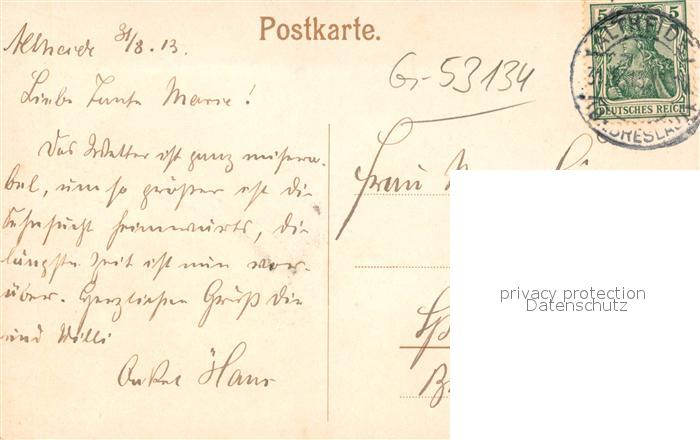 Postkarte.
Altheide 31/8. 13.
Gr-53134
5 5
ALTHEIDE
(BZ. BRESLAU)
DEUTSCHES REICH
Liebe Tante Marie!
Das Wetter ist ganz misera-
bel, um so größer ist die
Sehnsucht heimwärts, die
längste Zeit ist nun vor-
über. Herzlichen Gruß Dir
und Willi
Onkel Hans
Frau
privacy protection
Datenschutz